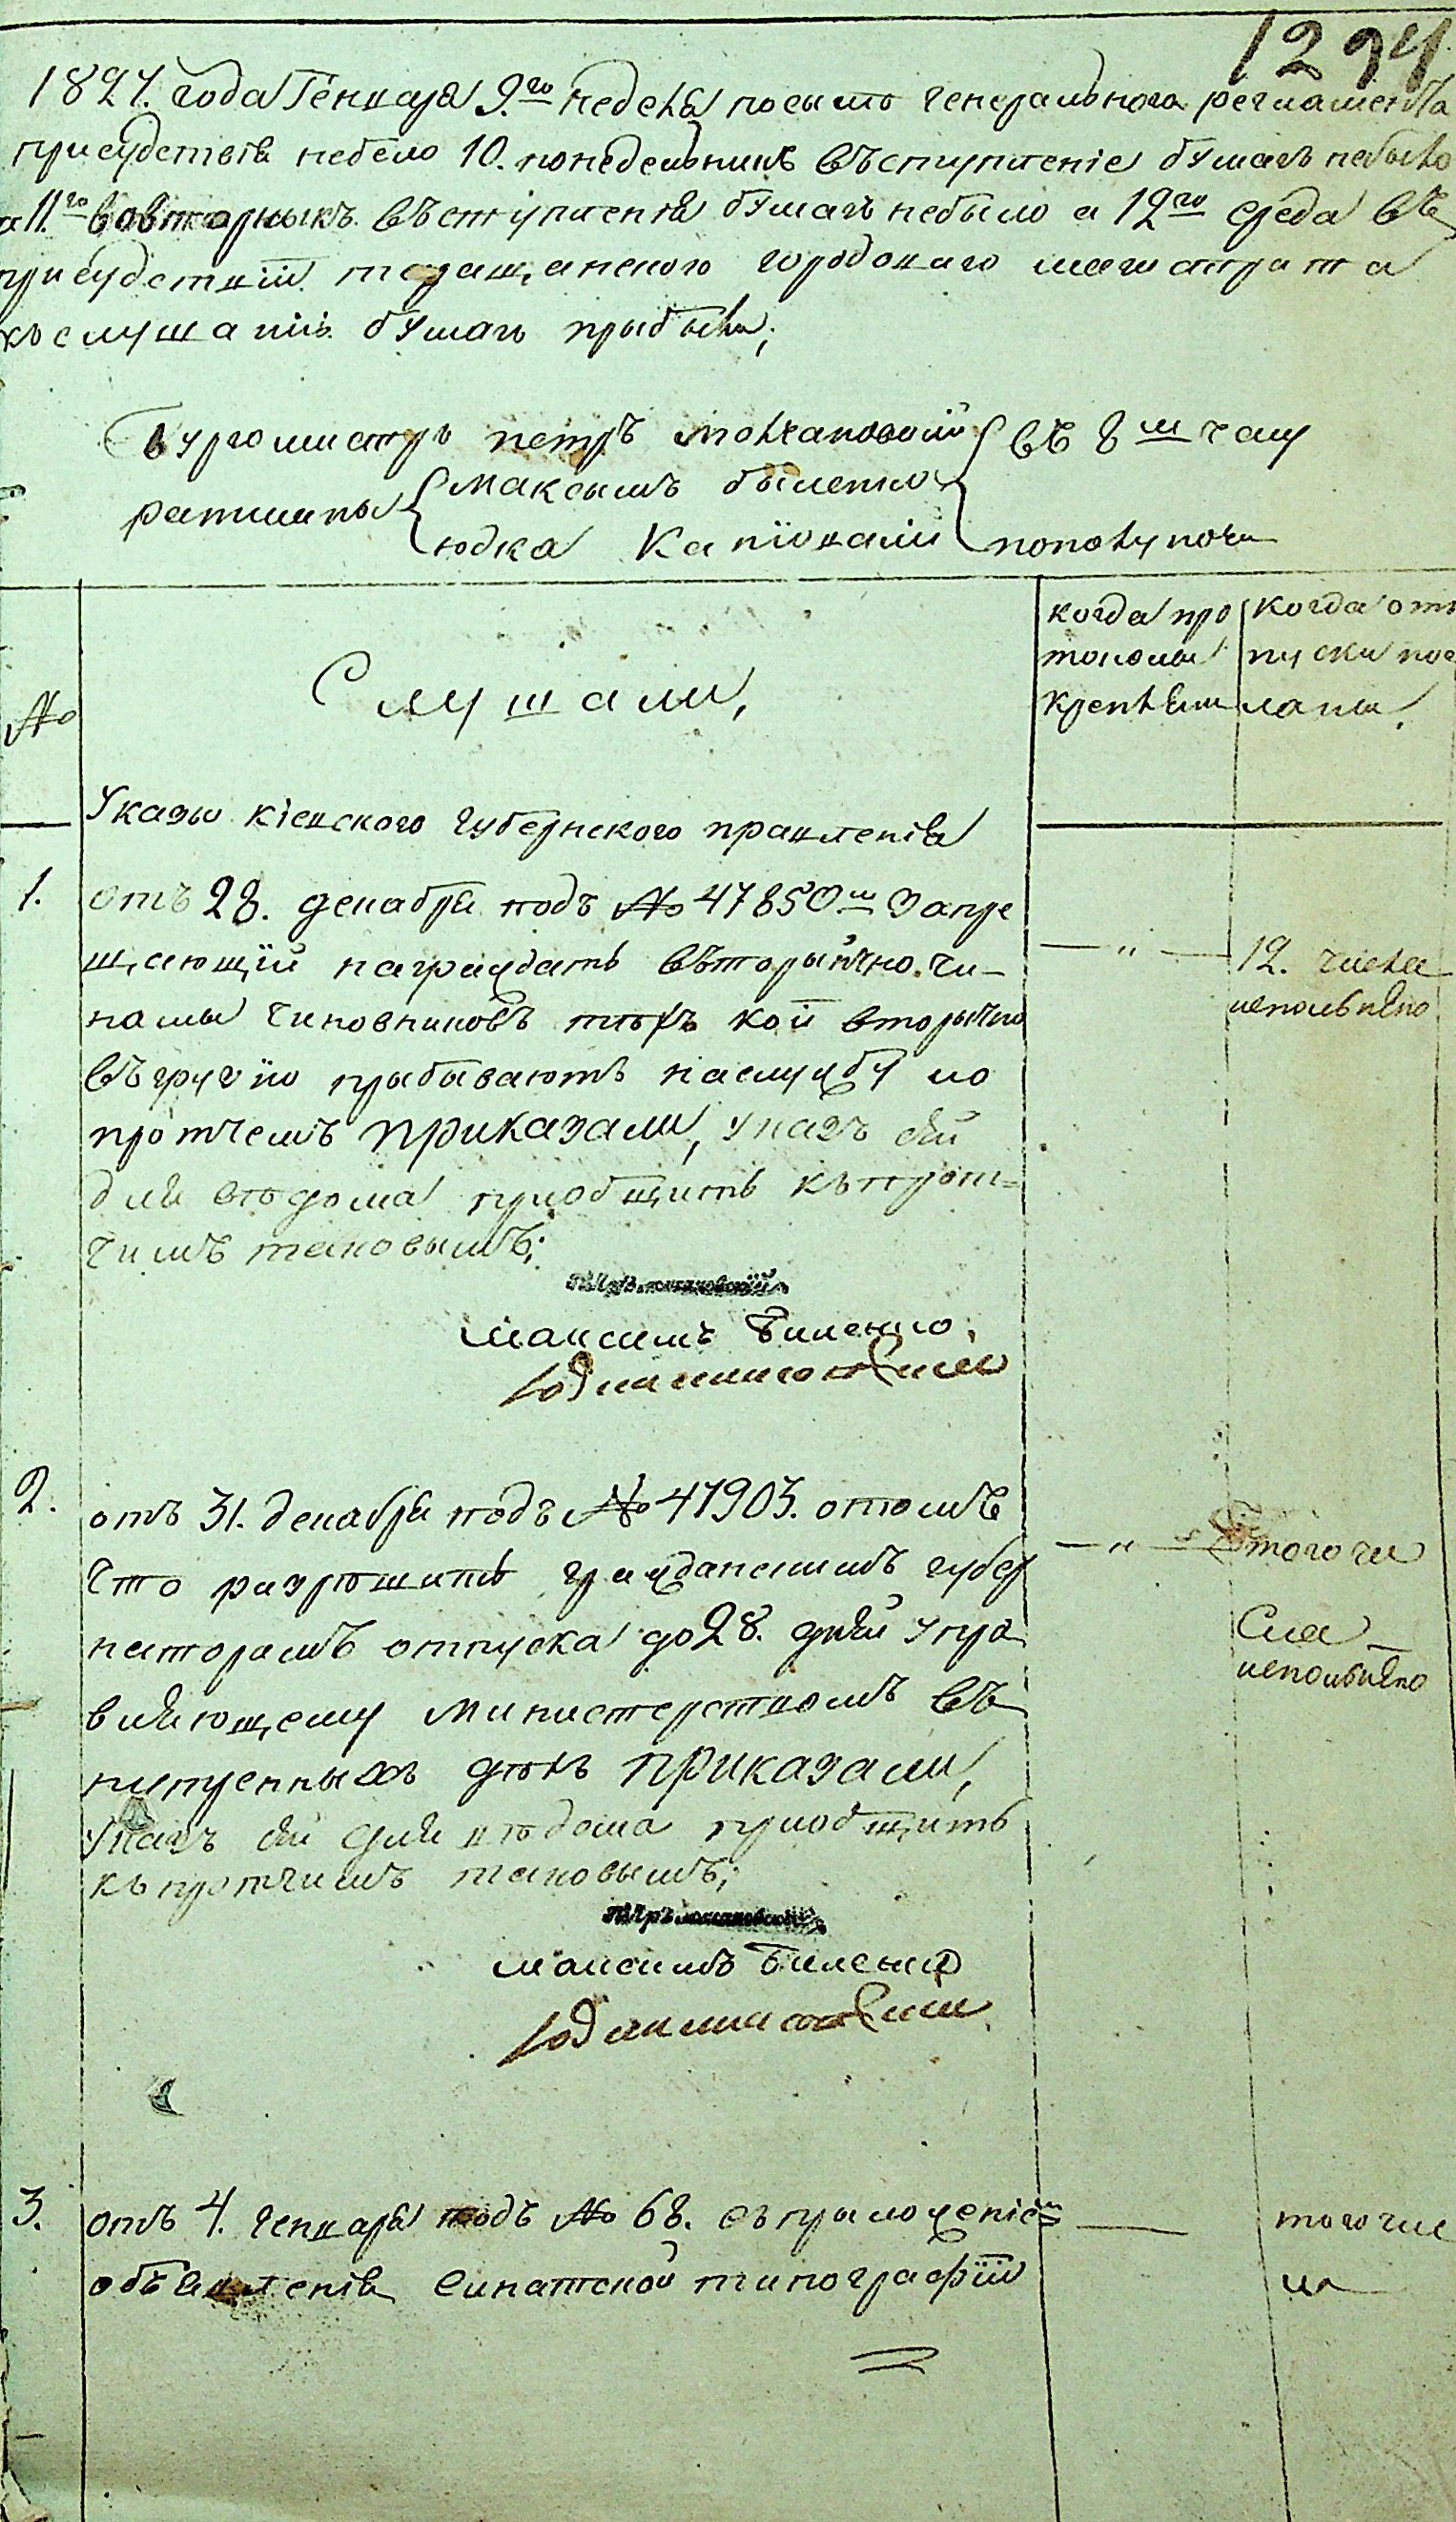 1294
1827. года Генваря 9.го неделя посылѣ генеральнога регламента
присудствія небыло 10. понедельникъ въступленіе бумагъ небыло
а 11.го вовторныкъ въступленія бумагъ небыло а 12го среда въ
присудствій таращанского городоваго магистрата
къслушанію бумагъ прыбыли,
Бургомистръ петръ въ 8м часу
ратманы Максымъ быленко
юдка пополуночи
№
Слушали,
когда про
токолы
крепълены
когда отъ
пуски пос
ланы,
Указы кіевского губернского правленія
1. отъ 28. декабря подъ № 47850м Запре
щающій награждать въторычно чи-
намы чиновниковъ тѣхъ кои вторычно
въ прыбываютъ наслужбу ио
протчемъ приказали, указъ сей
для вѣдома приобщить къпрот=
чимъ таковымъ;
Максимъ Биленко
12. числа
исполънено
2. отъ 31. декабря подъ № 47903. отомъ
что разрѣшить гражданскимъ губер
наторамъ отпуска до 28. дней упра
вляющему министерствомъ въ
нутренныхъ дѣлъ приказали,
Указъ сей для вѣдома приобщить
къпротчимъ таковымъ;
Максимъ Биленко
того чи
сла
исполънено
3. отъ 4. генваря подъ № 68. съпрыложеніемъ
объявленія Синатской типографіи
того чис
ла